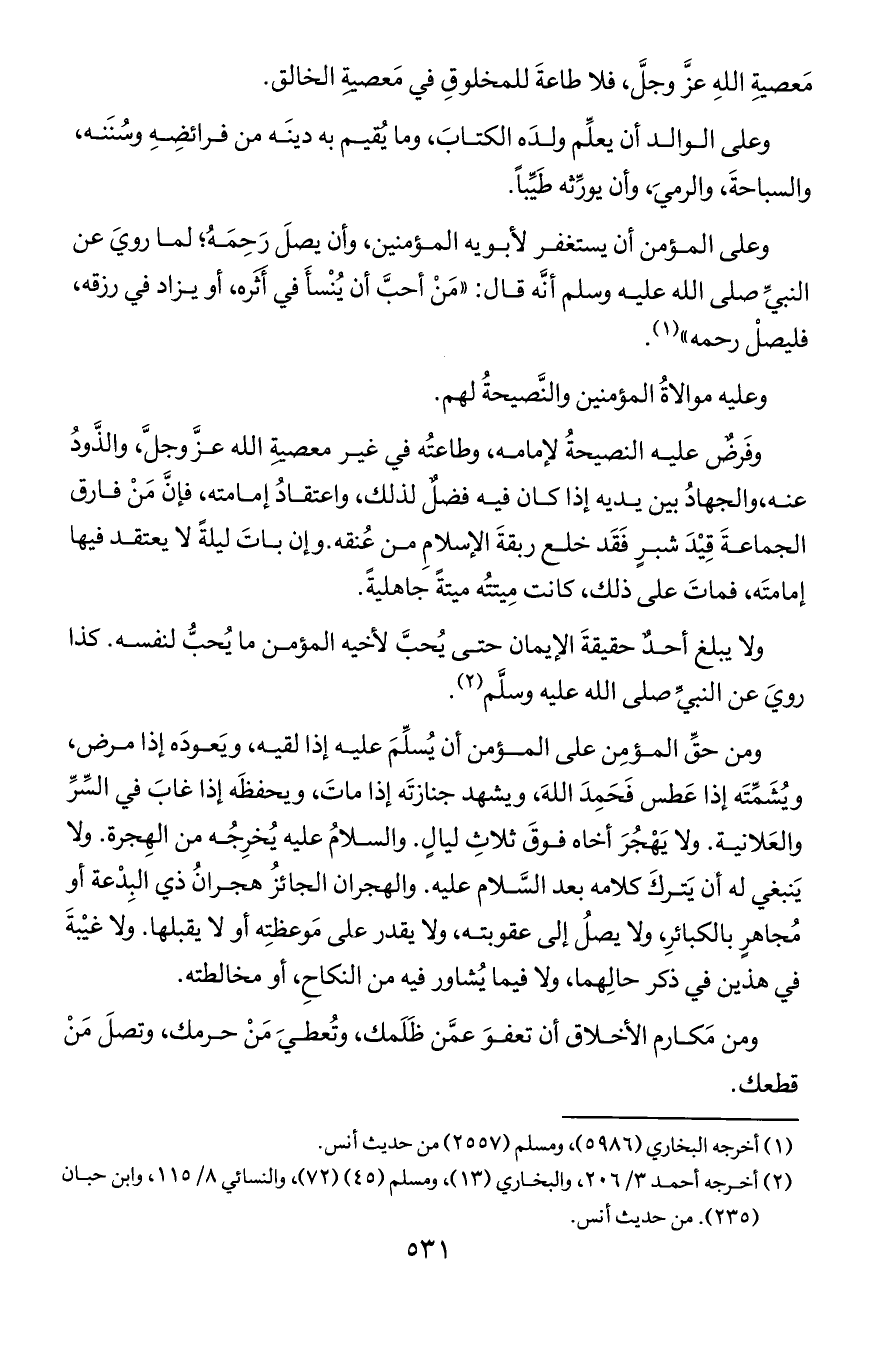 مَعصيةِ اللهِ عزَّ وجلَّ، فلا طاعةَ للمخلوقِ في مَعصيةِ الخالق.
وعلى الوالد أن يعلِّم ولدَه الكتابَ، وما يُقيم به دينَه من فرائضِهِ وسُنَنه،
والسباحةَ، والرميَ، وأن يورِّثه طَيِّباً.
وعلى المؤمن أن يستغفر لأبويه المؤمنين، وأن يصلَ رَحِمَهُ؛ لما رويَ عن
النبيِّ صلى الله عليه وسلم أنَّه قال: «مَنْ أحبَّ أن يُنْسأَ في أَثَره، أو يزاد في رزقه،
فليصلْ رحمه»(١).
وعليه موالاةُ المؤمنين والنَّصيحةُ لهم.
وفَرضٌ عليه النصيحةُ لإمامه، وطاعتُه في غير معصيةِ الله عزَّ وجلَّ، والذَّودُ
عنه،والجهادُ بين يديه إذا كان فيه فضلٌ لذلك، واعتقادُ إمامته، فإنَّ مَنْ فارق
الجماعةَ قِيْدَ شبرٍ فَقَد خلع ربقةَ الإسلامِ من عُنقه.وإن باتَ ليلةً لا يعتقد فيها
إمامتَه، فماتَ على ذلك، كانت مِيتتُه ميتةً جاهليةً.
ولا يبلغ أحدٌ حقيقةَ الإيمان حتى يُحبَّ لأخيه المؤمن ما يُحبُّ لنفسه. كذا
رويَ عن النبيِّ صلى الله عليه وسلَّم(٢).
ومن حقِّ المؤمِن على المؤمن أن يُسلِّمَ عليه إذا لقيه، ويَعودَه إذا مرض،
ويُشَمِّتَه إذا عَطس فَحَمِدَ اللهَ، ويشهد جنازتَه إذا ماتَ، ويحفظَه إذا غابَ في السِّرِّ
والعَلانية. ولا يَهْجُرَ أخاه فوقَ ثلاثِ ليالٍ. والسلامُ عليه يُخرِجُه من الهِجرة. ولا
يَنبغي له أن يَتركَ كلامه بعد السَّلام عليه. والهجران الجائزُ هجرانُ ذي البِدْعة أو
مُجاهرٍ بالكبائرِ، ولا يصلُ إلى عقوبته، ولا يقدر على مَوعظتِه أو لا يقبلها. ولا غيْبةَ
في هذين في ذكر حالِهما، ولا فيما يُشاور فيه من النكاحِ، أو مخالطته.
ومن مَكارم الأخلاق أن تعفوَ عمَّن ظَلَمك، وتُعطيَ مَنْ حرمك، وتصلَ مَنْ
قطعك.
(١) أخرجه البخاري (٥٩٨٦)، ومسلم (٢٥٥٧) من حديث أنس.
(٢) أخرجه أحمد ٣/ ٢٠٦، والبخاري (١٣)، ومسلم (٤٥) (٧٢)، والنسائي ٨/ ١١٥، وابن حبان
(٢٣٥). من حديث أنس.
٥٣١